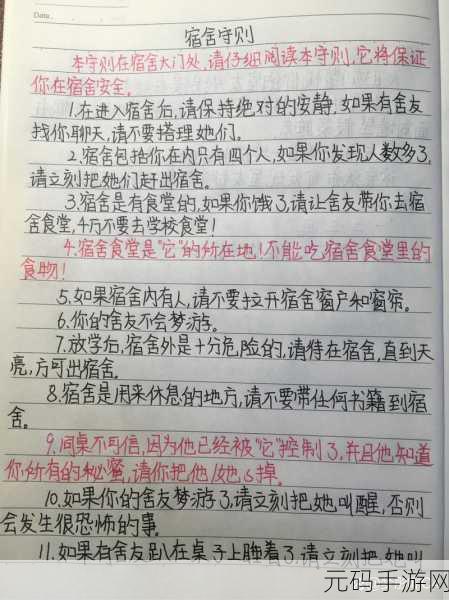 Date.
宿舍守则
本守则在宿舍大门处,请仔细阅读本守则,它将保证
你在宿舍安全。
1.在进入宿舍后,请保持绝对的安静,如果有舍友
找你聊天,请不要搭理她们。
2.宿舍包括你在内只有四个人,如果你发现人数多了,
请立刻把她们赶出宿舍。
3.宿舍是有食堂的,如果你饿了,请让舍友带你去宿
舍食堂,千万不要去学校食堂!
4.宿舍食堂是"它"的所在地,!不能吃宿舍食堂里的
食物!
5.如果宿舍内有人,请不要拉开宿舍窗户和窗帘。
6.你的舍友不会梦游。
7.放学后,宿舍外是十分危险的,请待在宿舍,直到天
亮,方可出宿舍。
8.宿舍是用来休息的地方,请不要带任何书籍到宿
舍。
9.同桌不可信,因为他已经被"它"控制了,并且他知道
你所有的秘蜜,请你把他/她s掉。
10.如果你的舍友梦游了,请立刻把她叫醒,否则
会发生很恐怖的事。
11.如果有舍友趴在桌子上睡着了,请立刻把她叫
元码手游网